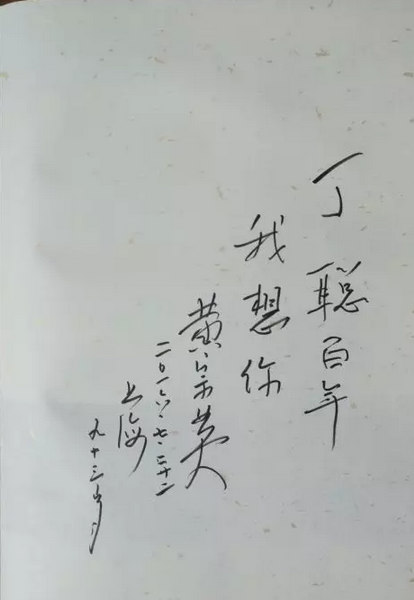 丁聪百年
我想你
黄宗英
二〇一六.七.二十二
上海
九十三岁